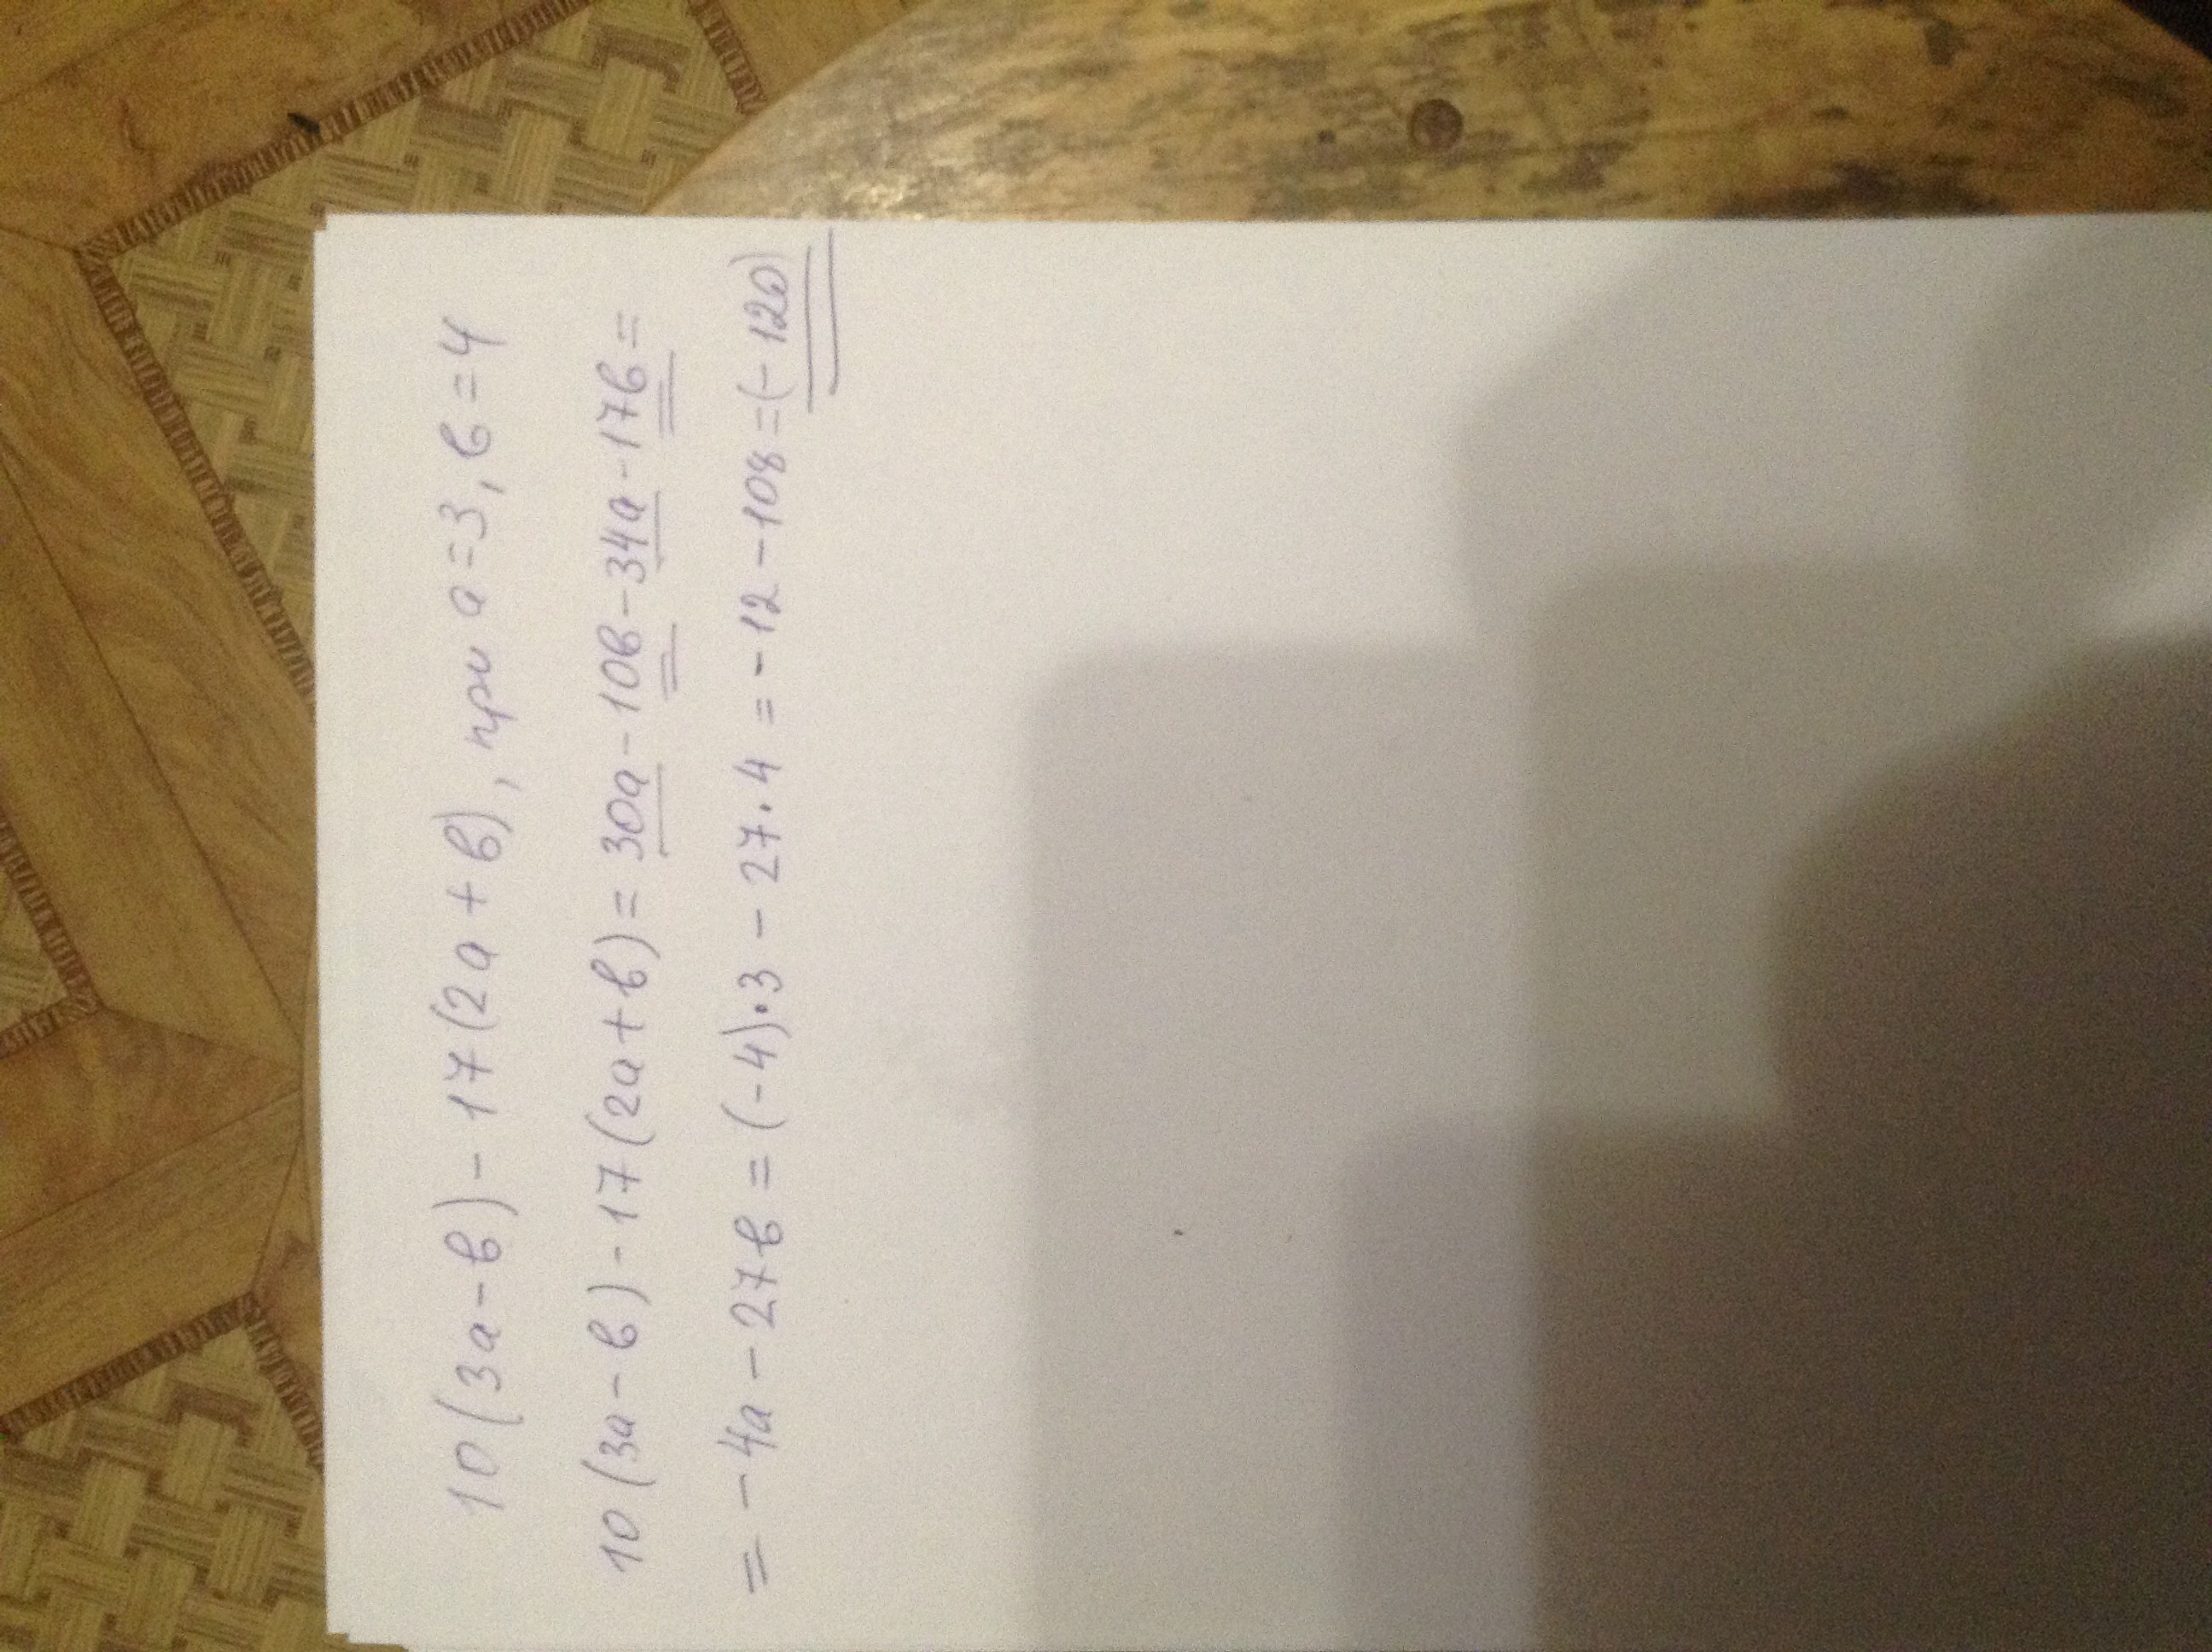 10(3а-в)-17(2а+в), при а=3, в=4
10(3а-в)-17(2а+в)=30а-10в-34а-17в=
=-4а-27в=(-4)·3-27·4=-12-108=(-120)